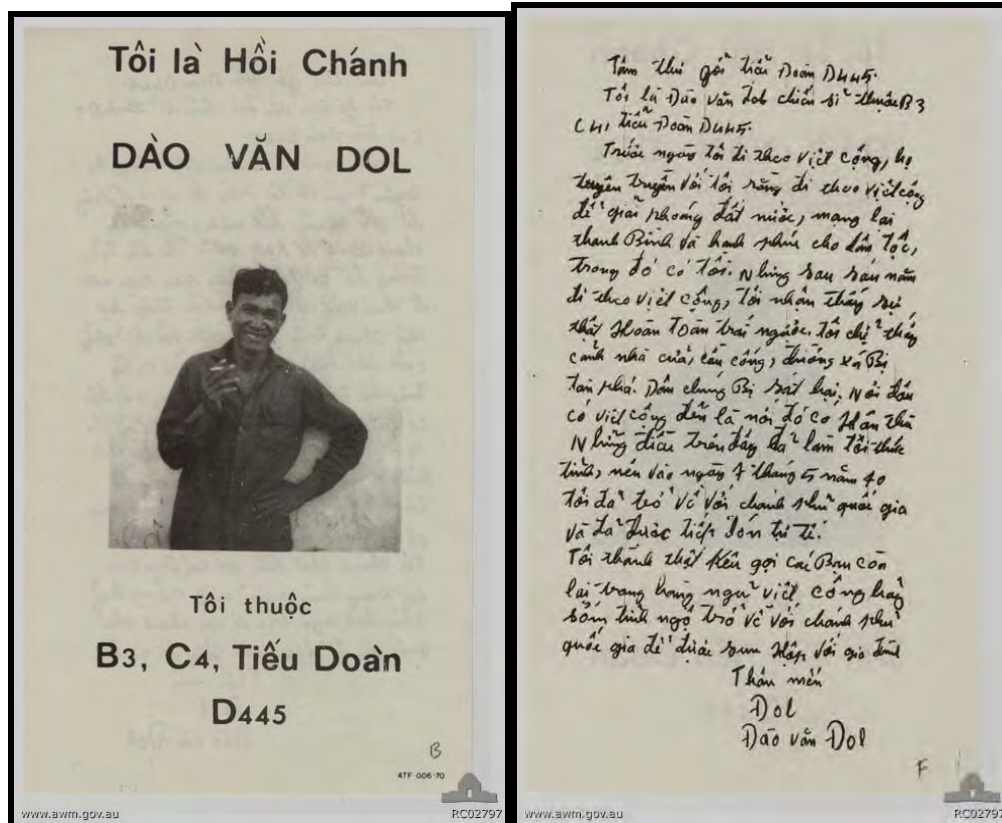 Tôi là Hồi Chánh
DÀO VĂN DOL
Tôi thuộc
B3, C4, Tiểu Doàn
D445
B
ATF 006-70
www.awm.gov.au
RC02797
Tâm thư gởi tiểu Đoàn D445.
Tôi là Đào văn Dol chiến sĩ thuộc B3
C4, tiểu Đoàn D445.
Trước ngày tôi đi theo việt cộng, họ
tuyên truyền với tôi rằng đi theo việt cộng
để giải phóng đất nước, mang lại
thanh Bình và hạnh phúc cho dân tộc,
trong đó có tôi. Nhưng sau sáu năm
đi theo việt cộng, tôi nhận thấy sự
thật Hoàn Toàn trái ngược. tôi chỉ thấy
cảnh nhà cửa, cầu cống, đường xá Bị
tàn phá. Dân chúng Bị sát hại. Nơi đâu
có việt cộng đến là nơi đó có
Những điều trên đây đã làm tôi thức
tỉnh, nên vào ngày 7 tháng 5 năm 70
tôi đã trở về với chánh phủ quốc gia
và đã được tiếp đón tử tế.
Tôi thành thật kêu gọi các Bạn còn
lại trong hàng ngũ việt cộng hãy
sớm tỉnh ngộ trở về với chánh phủ
quốc gia để được sum Họp với gia đình
Thân mến
Dol
Đào văn Dol
F
www.awm.gov.au
RC02797